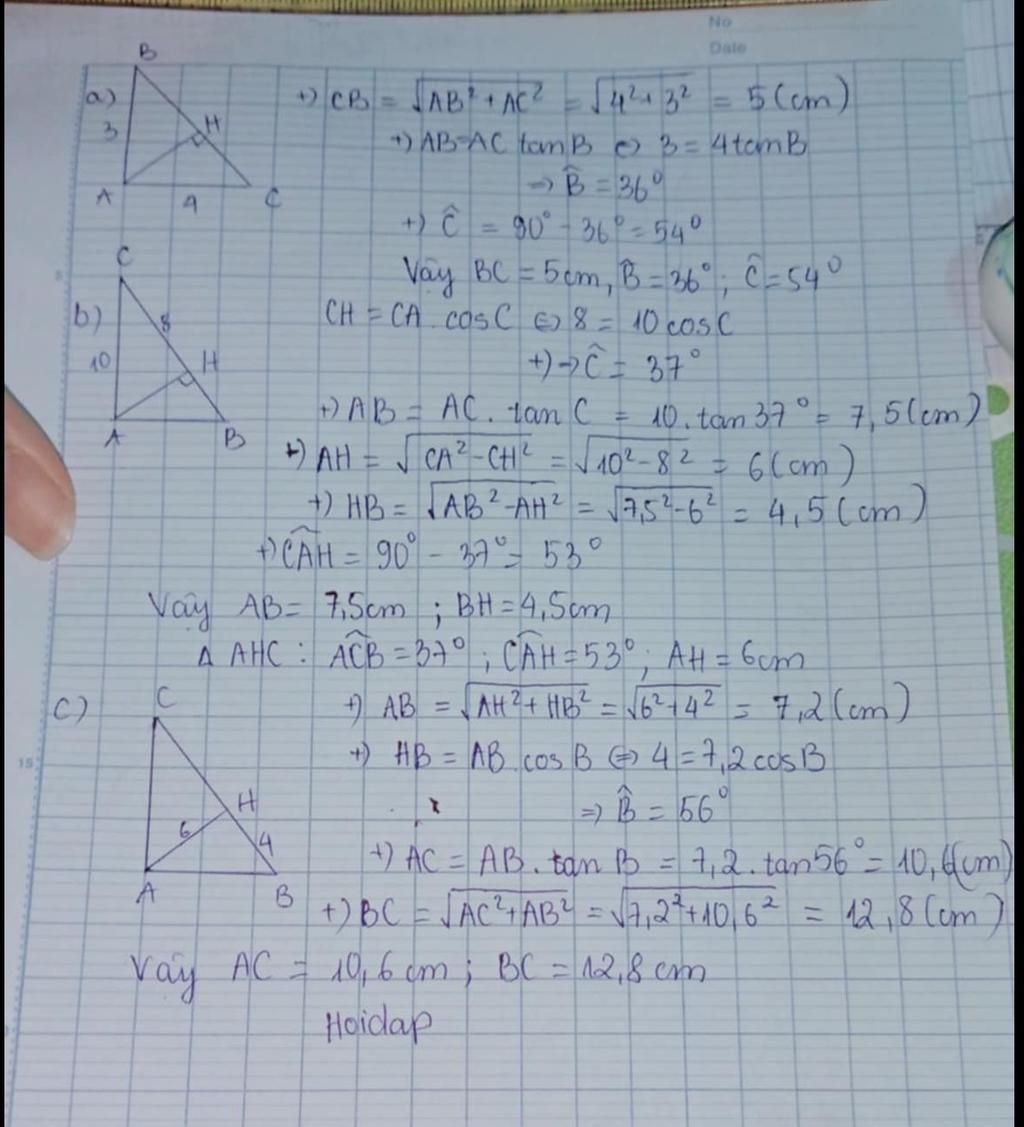 No
Date
B
a) +) CB = √AB² + AC² = √4² + 3² = 5 (cm)
3 H
+) AB = AC tanB ⇔ 3 = 4tanB
⇒ B̂ = 36°
A 4 C
+) Ĉ = 90° - 36° = 54°
Vậy BC = 5cm, B̂ = 36°; Ĉ = 54°
C
b) 8 CH = CA. cosC ⇔ 8 = 10cosC
10 H
+) → Ĉ = 37°
+) AB = AC. tanC = 10. tan37° = 7,5(cm)
A B
+) AH = √CA² - CH² = √10² - 8² = 6(cm)
+) HB = √AB² - AH² = √7,5² - 6² = 4,5(cm)
+) CÂH = 90° - 37° = 53°
Vậy AB = 7,5cm ; BH = 4,5cm
Δ AHC : AĈB = 37° ; CÂH = 53° ; AH = 6cm
c) C +) AB = √AH² + HB² = √6² + 4² = 7,2(cm)
15
+) HB = AB. cosB ⇔ 4 = 7,2cosB
H
⇒ B̂ = 56°
6 4
+) AC = AB. tanB = 7,2. tan56° = 10,6(cm)
A B
+) BC = √AC² + AB² = √7,2² + 10,6² = 12,8(cm)
Vậy AC = 10,6cm ; BC = 12,8cm
Hoidap